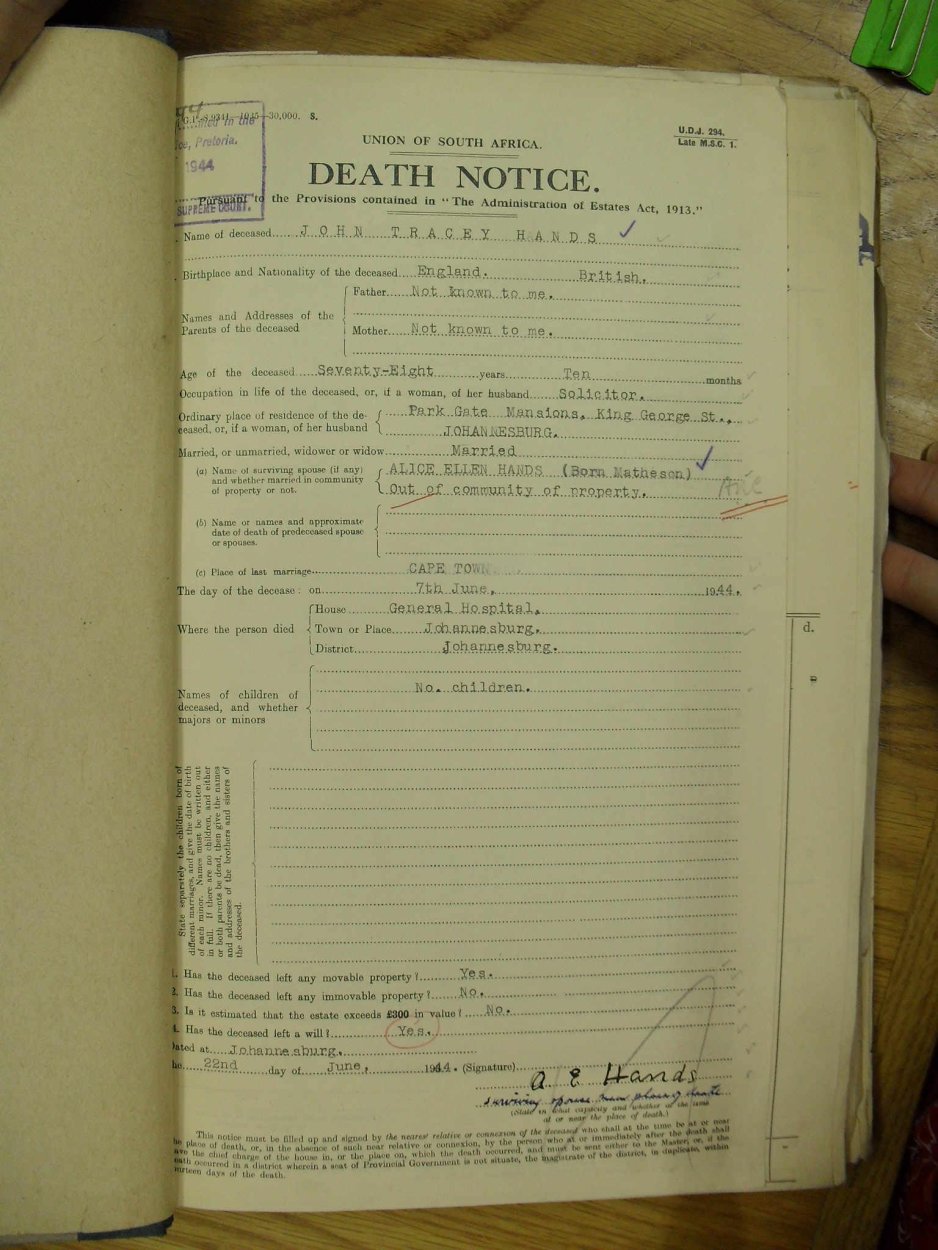 G.P.-S.9341—1945—30,000. S.
in the
Pretoria.
1944
SUPREME COURT.
U.D.J. 294.
Late M.S.C. 1.
UNION OF SOUTH AFRICA.
DEATH NOTICE.
Pursuant to the Provisions contained in "The Administration of Estates Act, 1913."
Name of deceased JOHN TRACEY HANDS
Birthplace and Nationality of the deceased England. British.
Names and Addresses of the Parents of the deceased
Father Not known to me.
Mother Not known to me.
Age of the deceased Seventy-Eight years Ten months
Occupation in life of the deceased, or, if a woman, of her husband Solicitor.
Ordinary place of residence of the de-
ceased, or, if a woman, of her husband
Park Gate Mansions, King George St.,
JOHANNESBURG.
Married, or unmarried, widower or widow Married
(a) Name of surviving spouse (if any)
and whether married in community
of property or not.
ALICE ELLEN HANDS (Born Matheson)
Out of community of property.
(b) Name or names and approximate
date of death of predeceased spouse
or spouses.
(c) Place of last marriage CAPE TOWN
The day of the decease: on 7th June, 1944.
Where the person died
House General Hospital,
Town or Place Johannesburg.
District Johannesburg.
Names of children of
deceased, and whether
majors or minors
No. children.
State separately the children born of
different marriages, and give the date of birth
of each minor. Names must be written out
in full. If there are no children, and either
or both parents be dead, then give the names
and addresses of the brothers and sisters of
the deceased.
1. Has the deceased left any movable property? Yes.
2. Has the deceased left any immovable property? No.
3. Is it estimated that the estate exceeds £300 in value? No.
4. Has the deceased left a will? Yes.
Dated at Johannesburg.
the 22nd day of June, 1944. (Signature)
A E Hands
surviving spouse
(State in what capacity and whether at the time
at or near the place of death.)
This notice must be filled up and signed by the nearest relative or connexion of the deceased who shall at the time be at or near
the place of death, or, in the absence of such near relative or connexion, by the person who at or immediately after the death shall
have the chief charge of the house in, or the place on, which the death occurred, and must be sent either to the Master, or, if the
death occurred in a district wherein a seat of Provincial Government is not situate, the magistrate of the district, in duplicate, within
fourteen days of the death.
d.